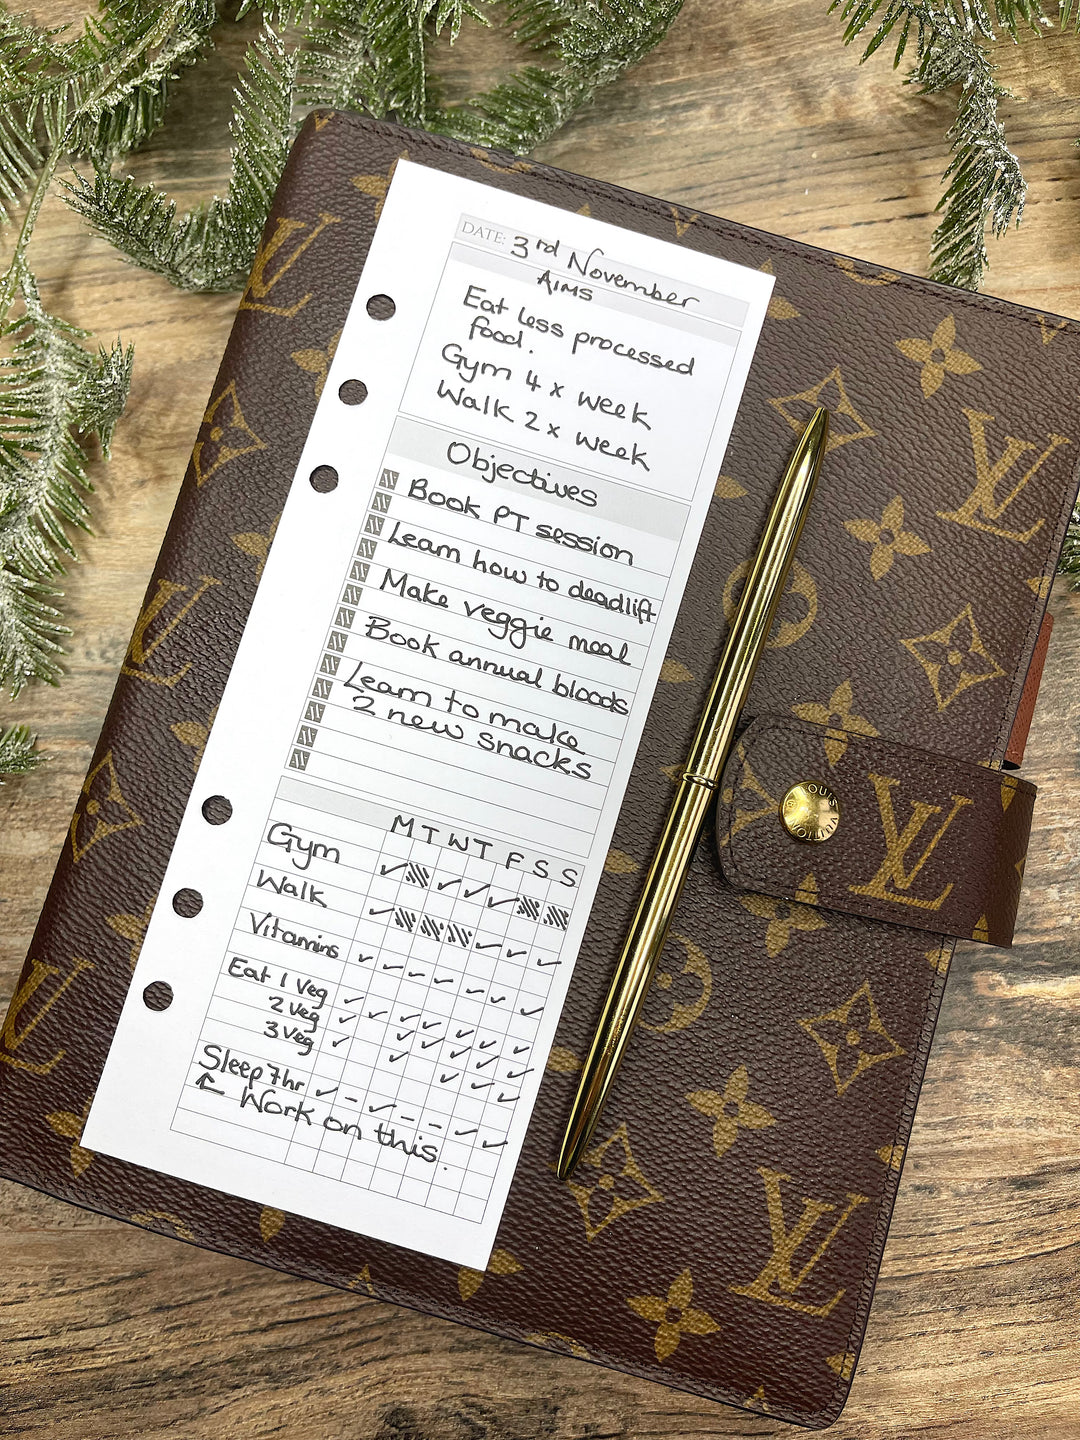 DATE: 3rd November
AIMS
Eat less processed
food.
Gym 4 x week
Walk 2 x week
Objectives
Book PT session
Learn how to deadlift
Make veggie meal
Book annual bloods
Learn to make
2 new snacks
M T W T F S S
Gym ✓ ✓ ✓ ✓
Walk ✓ ✓ ✓ ✓
Vitamins ✓ ✓ ✓ ✓ ✓ ✓ ✓
Eat 1 Veg ✓ ✓ ✓ ✓ ✓ ✓ ✓
2 Veg ✓ ✓ ✓ ✓ ✓ ✓
3 Veg ✓ ✓ ✓ ✓ ✓
Sleep 7hr ✓ – ✓ – – ✓ ✓
↑ Work on this.
LOUIS VUITTON
LV
LV
LV
LV
LV
LV
LV